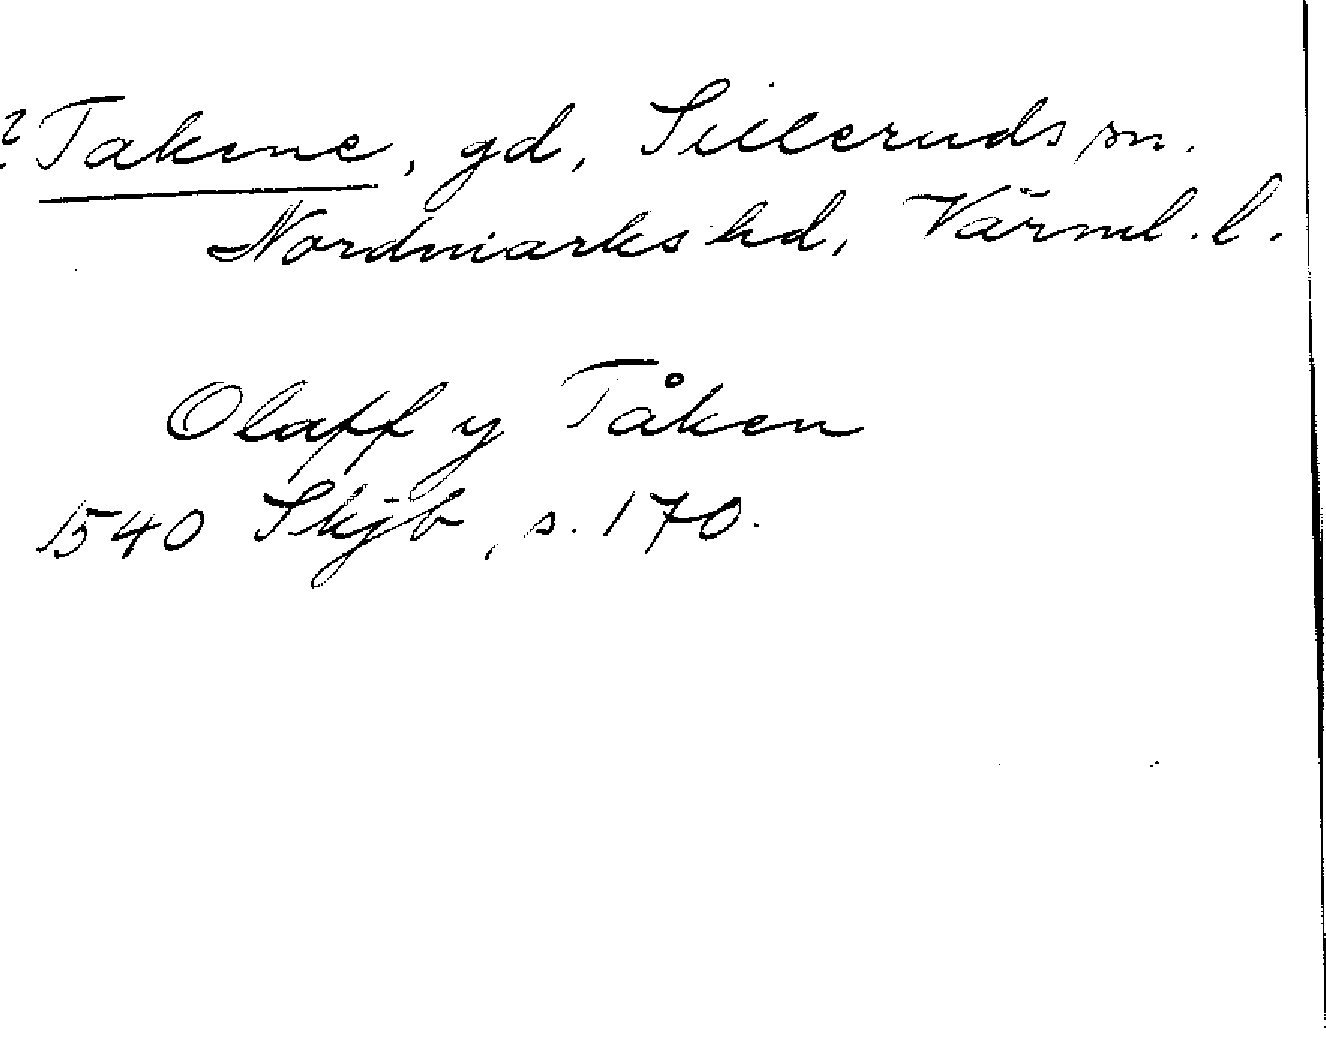 ? Takene, gd, Silleruds sn.
Nordmarks hd, Värml. l.
Olaff y Tåken
1540 Skjb, s. 170.